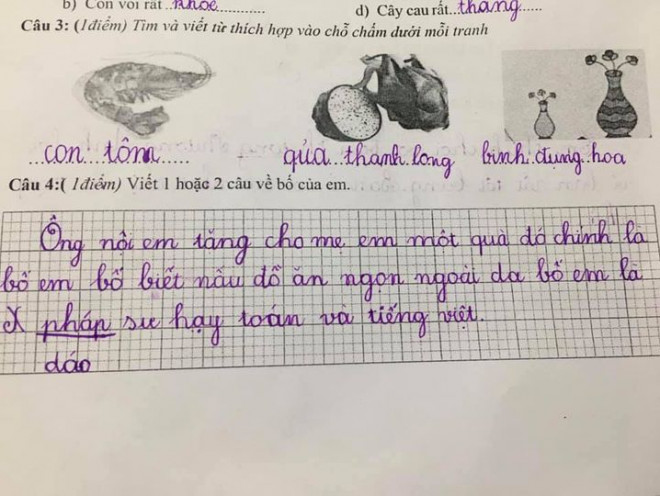 b) Con voi rất..khỏe............
d) Cây cau rất..thẳng......
Câu 3: (1điểm) Tìm và viết từ thích hợp vào chỗ chấm dưới mỗi tranh
...con..tôm..... qủa..thanh.long bình.đựng.hoa
Câu 4:( 1điểm) Viết 1 hoặc 2 câu về bố của em.
Ông nội em tặng cho mẹ em một quà đó chính là
bố em bố biết nấu đồ ăn ngon ngoài da bố em là
pháp sư hạy toán và tiếng việt.
dáo